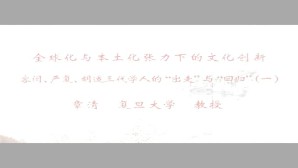 全球化与本土化张力下的文化创新
容闳、严复、胡适三代学人的“出走”与“回归”（一）
章清 复旦大学 教授